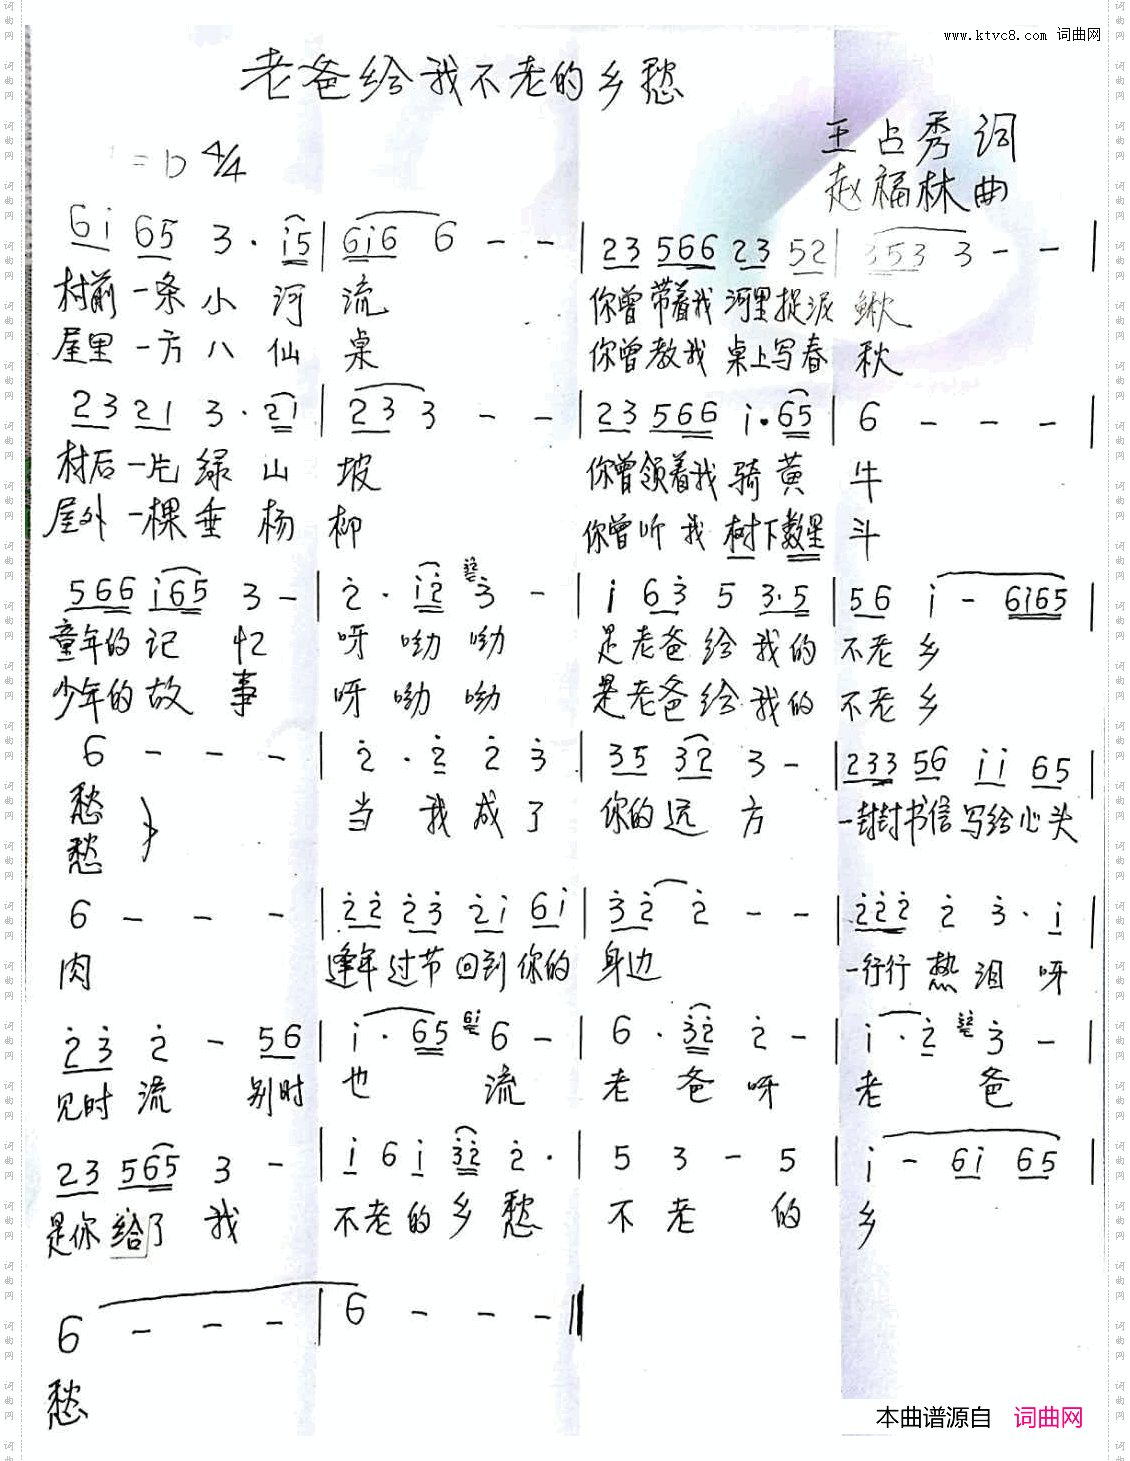 www.ktvc8.com 词曲网
老爸给我不老的乡愁
王占秀 词
赵福林 曲
1 = D 4/4
6i 65 3 · i5 | 6i6 6 - - | 23 566 23 52 | 353 3 - - |
村前一条小河流 你曾带着我河里捉泥鳅
屋里一方八仙桌 你曾教我桌上写春秋
23 21 3 · 21 | 23 3 - - | 23 566 i · 65 | 6 - - - |
村后一片绿山坡 你曾领着我骑黄牛
屋外一棵垂杨柳 你曾听我树下数星斗
566 i65 3 - | 2 · i2 3 - | i 63 5 3·5 | 56 i - 6i65 |
童年的记忆 呀呦呦 是老爸给我的不老乡
少年的故事 呀呦呦 是老爸给我的不老乡
6 - - - | 2 · 2 2 3 | 35 32 3 - | 233 56 ii 65 |
愁 当我成了你的远方 一封封书信写给心头
愁
6 - - - | 22 23 2i 6i | 32 2 - - | 222 2 3 · i |
肉 逢年过节回到你的身边 一行行热泪呀
23 2 - 56 | i · 65 6 - | 6 · 32 2 - | i · 2 3 - |
见时流 别时也流 老爸呀老爸
23 565 3 - | i 6 i 32 2 · | 5 3 - 5 | i - 6i 65 |
是你给了我 不老的乡愁 不老的乡
6 - - - | 6 - - - ‖
愁
本曲谱源自 词曲网